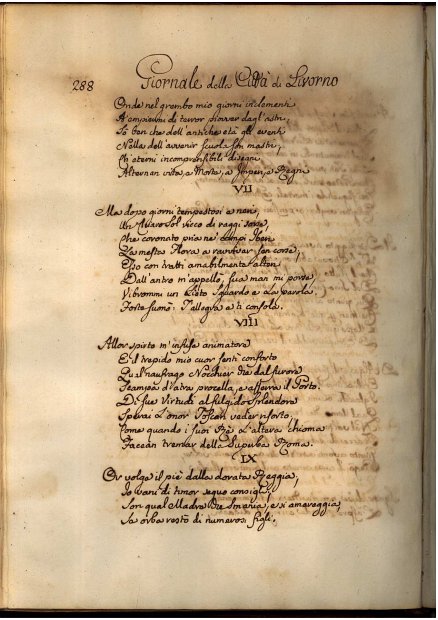 288 Giornale della Città di Livorno
Onde nel grembo mio giorni inclementi
A empiermi di terror piover dagl'astri,
Io ben che dell'antiche età gli eventi
Nella dell'avvenir scuola son mastri,
Ch'eterni incomprensibili disegni
Alternan vita, a Morte, a Imperi, a Regni
VII
Ma dopo giorni tempestosi e neri,
Un Chiaro Sol ricco di raggi sorse,
Che coronato pria ne' campi Iberi
La mesta Flora a ravvivar sen corse,
E con tratti amabilmente alteri
Dall'antro m'appellò, sua man mi porse,
Vibrommi un lieto sguardo e la parola
Forte suonò: T'allegra e ti consola.
VIII
Allor spirto m'infuse animatore
E il trepido mio cuor sentì conforto
Qual naufrago Nocchier che dal furore
Scampa d'atra procella, e afferra il Porto.
Di sue Virtudi al fulgido splendore
Sperai l'onor Toscan veder risorto,
Come quando i suoi Rè l'altera chioma
Facean tremar della Superba Roma.
IX
Or volge il piè dalla dorata Reggia,
Io vani di timor seguo consigli,
Son qual Madre che smania, e amareggia,
Se orba restò di numerosi figli.